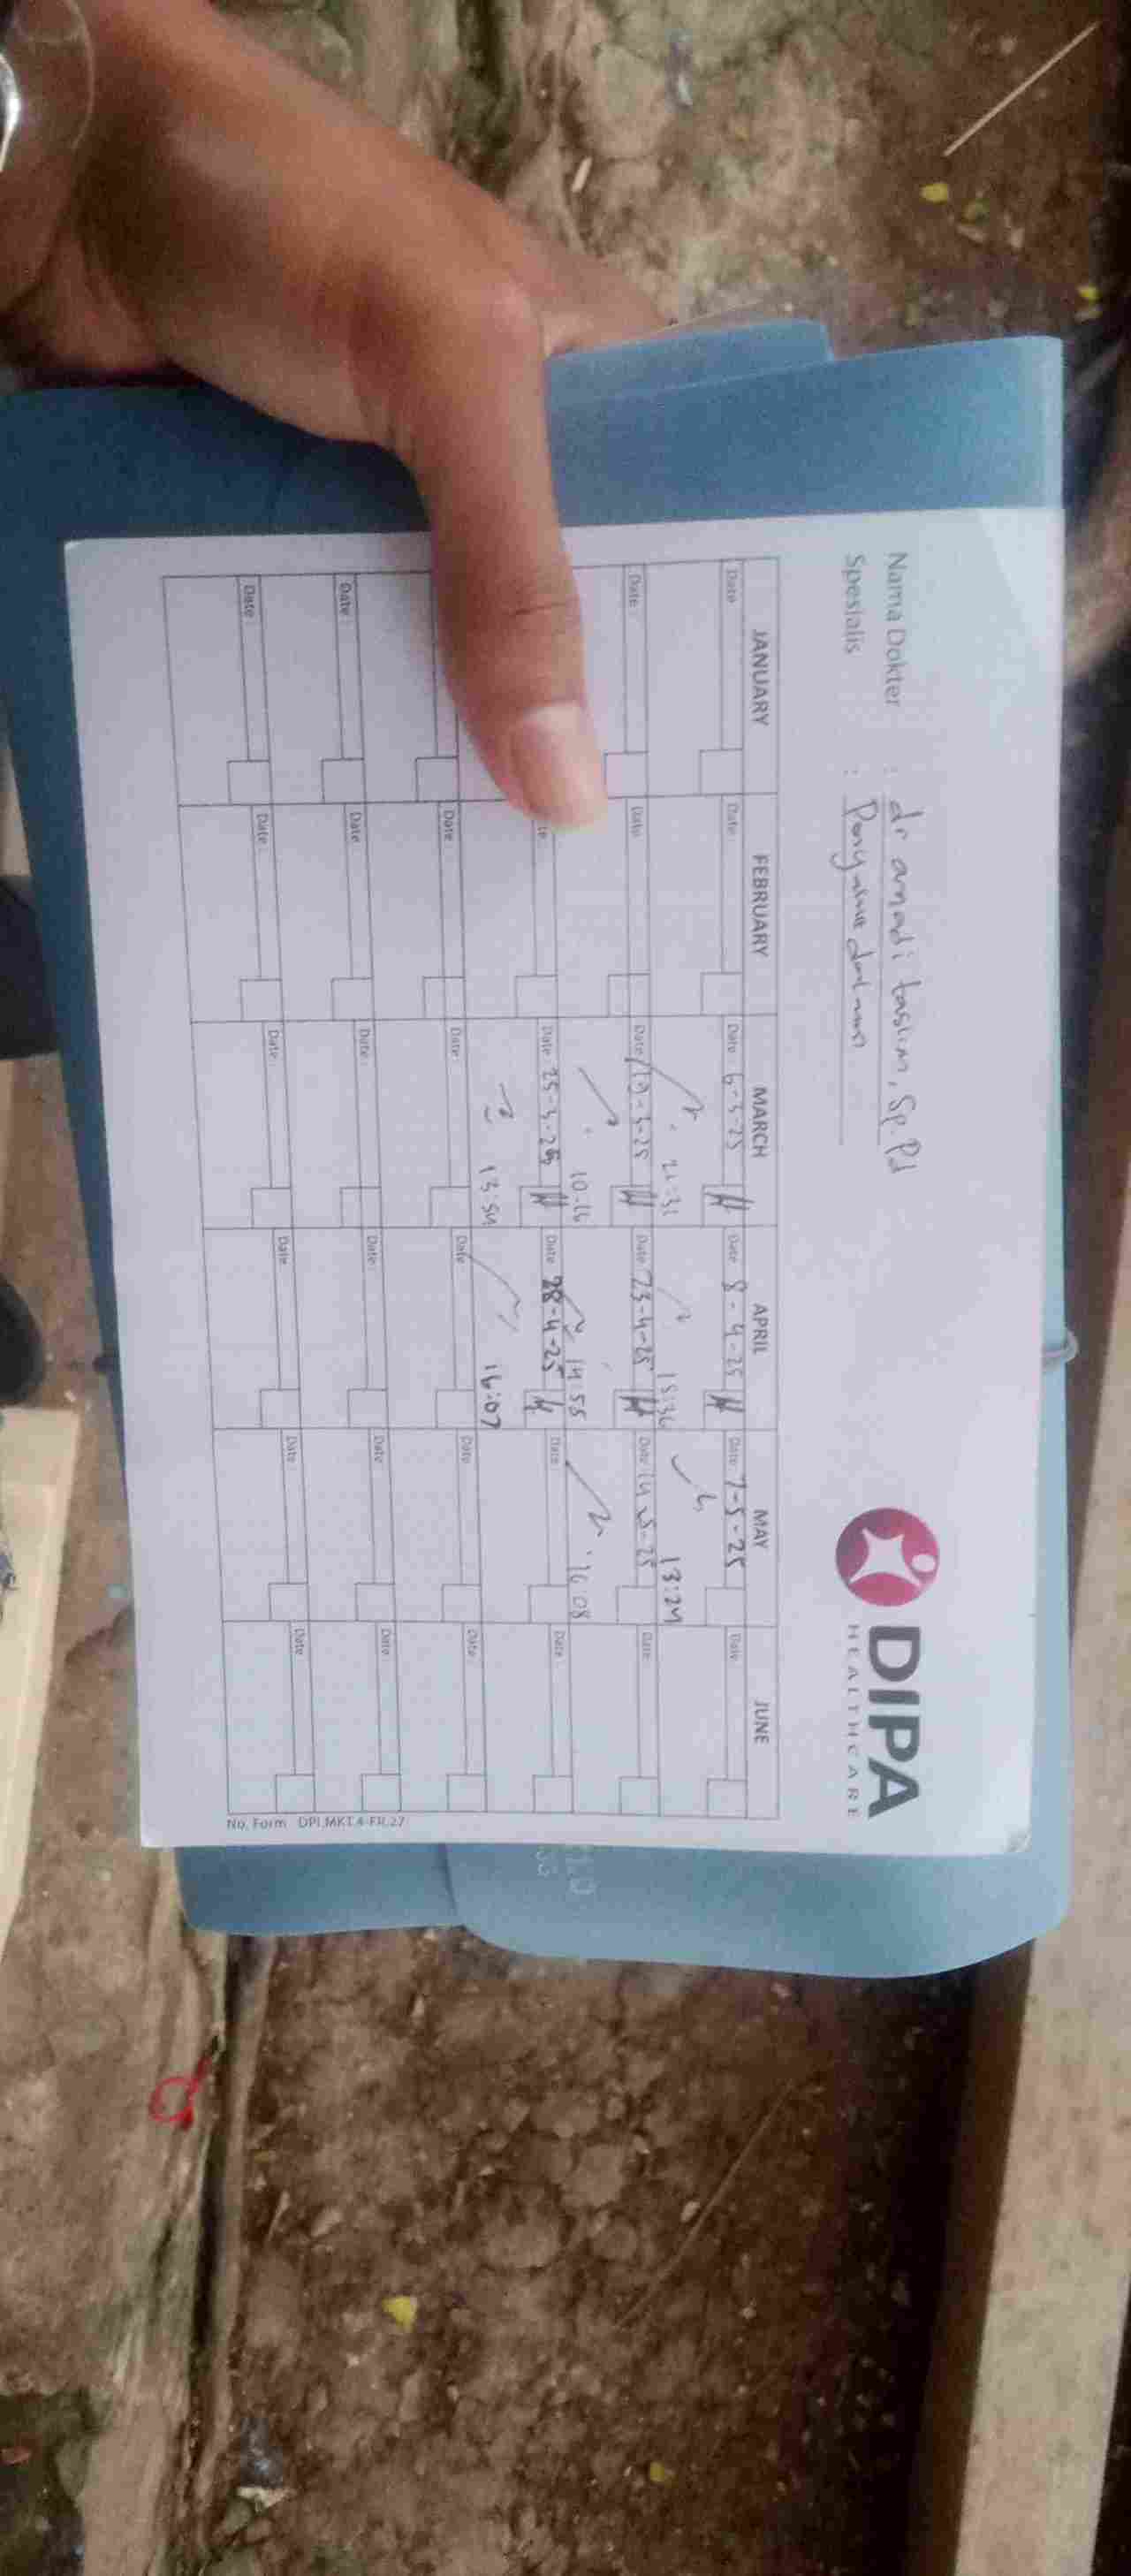 DIPA
HEALTHCARE
Nama Dokter : dr amadi taslim, Sp.Pd
Spesialis : Penyakit dalam
JANUARY FEBRUARY MARCH APRIL MAY JUNE
Date : Date : Date : 6-3-25 Date : 8-4-25 Date : 7-5-25 Date :
21:31 15:36 13:24
Date : Date : Date : 19-3-25 Date : 23-4-25 Date : 14-5-25 Date :
10-16 14:55 16:08
Date : 25-3-25 Date : 28-4-25 Date : Date :
13:54 16:07
Date : Date : Date : Date : Date :
Date : Date : Date : Date : Date : Date :
Date : Date : Date : Date : Date : Date :
No. Form DPI.MKT.4-FR.27